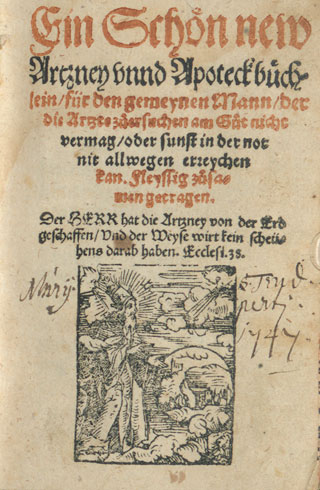 Ein Schön new
Artzney vnnd Apoteckbüch-
lein/für den gemeynen Mann/der
die Artzte zůersuchen am Gůt nicht
vermag/oder sunst in der not
nit allwegen erreychen
kan. Fleyssig zůsa-
men getragen.
Der HERR hat die Artzney von der Erd
geschaffen/Vnd der Weyse wirt kein scheü-
hens darab haben. Ecclesi. 38.
1747